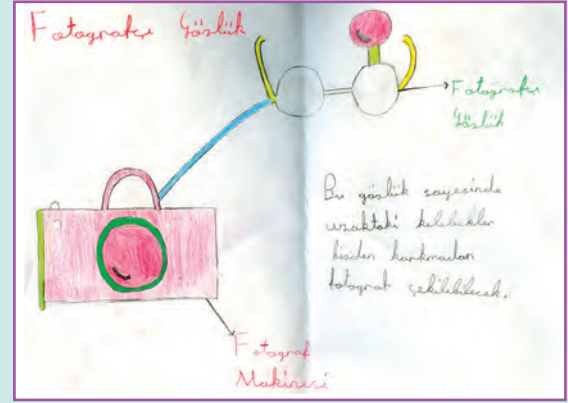 Fotoğrafçı Gözlük
Fotoğrafçı
Gözlük
Bu gözlük sayesinde
uzaktaki kelebekler
bizden korkmadan
fotoğraf çekilebilecek.
Fotoğraf
Makinesi